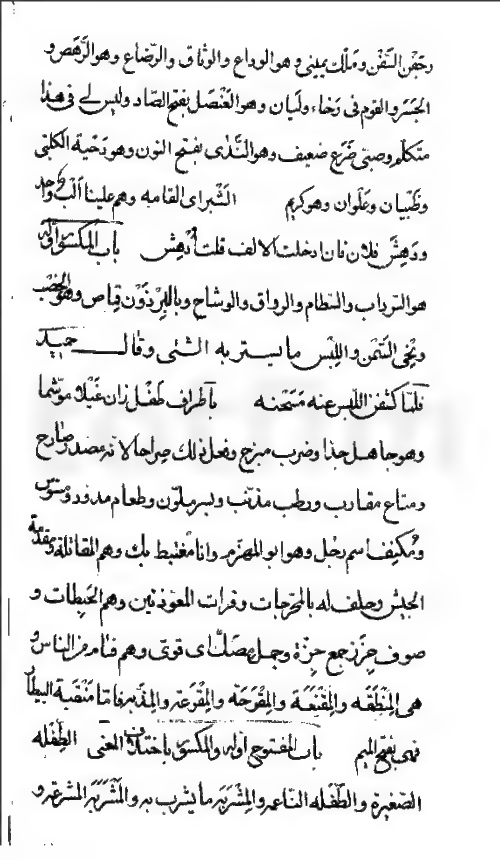 وجفن السيف وملك يميني وهو الوداع والوثاق والرضاع وهو الرصاص و
الجسر والقوم في رخاء وليان وهو العنصل بفتح الصاد وليس لي في هذا
متكلم وصبي ضرع ضعيف وهو الندى بفتح النون وهو دحية الكلبي
وظبيان وعلوان وهو كريم الشبر اي القامه وهم علينا الب واحد
ودهش فلان فان ادخلت الالف قلت أدهش باب المكسور أوله
هو الترداب والنظام والرواق والوشاح وبالبرذون قماص وهو الخصب
ونحى السمن واللبس ما يستر به الشئ وقال حميد
فلما كشفن اللبس عنه مسحنه بأطراف طفل زان غيلا موشما
وهو جاهل جدا وضرب مبرح وفعل ذلك صراحا لانه مصدر صارح
ومتاع مقارب ورطب مذنب وبسر ملون وطعام مدود ومسوس
ومكنف اسم رجل وهو ابو المهزم وانا مغتبط بك وهم المقاتلة ومقدمة
الجيش وحلف له بالمحرجات وقرات المعوذتين وهم الحبطات و
صوف جزز جمع جزة وجمل مصك اي قوي وهم فئام من الناس و
هي المنطقه والمقنعة والمروحه والمقرعة والمذبه فاما منقبة البيطار
فهى بفتح الميم باب المفتوح اوله والمكسور باختلاف المعنى الطفله
الصغيرة والطفله الناعمه والمشربه ما يشرب به والمشربة المشرعه و